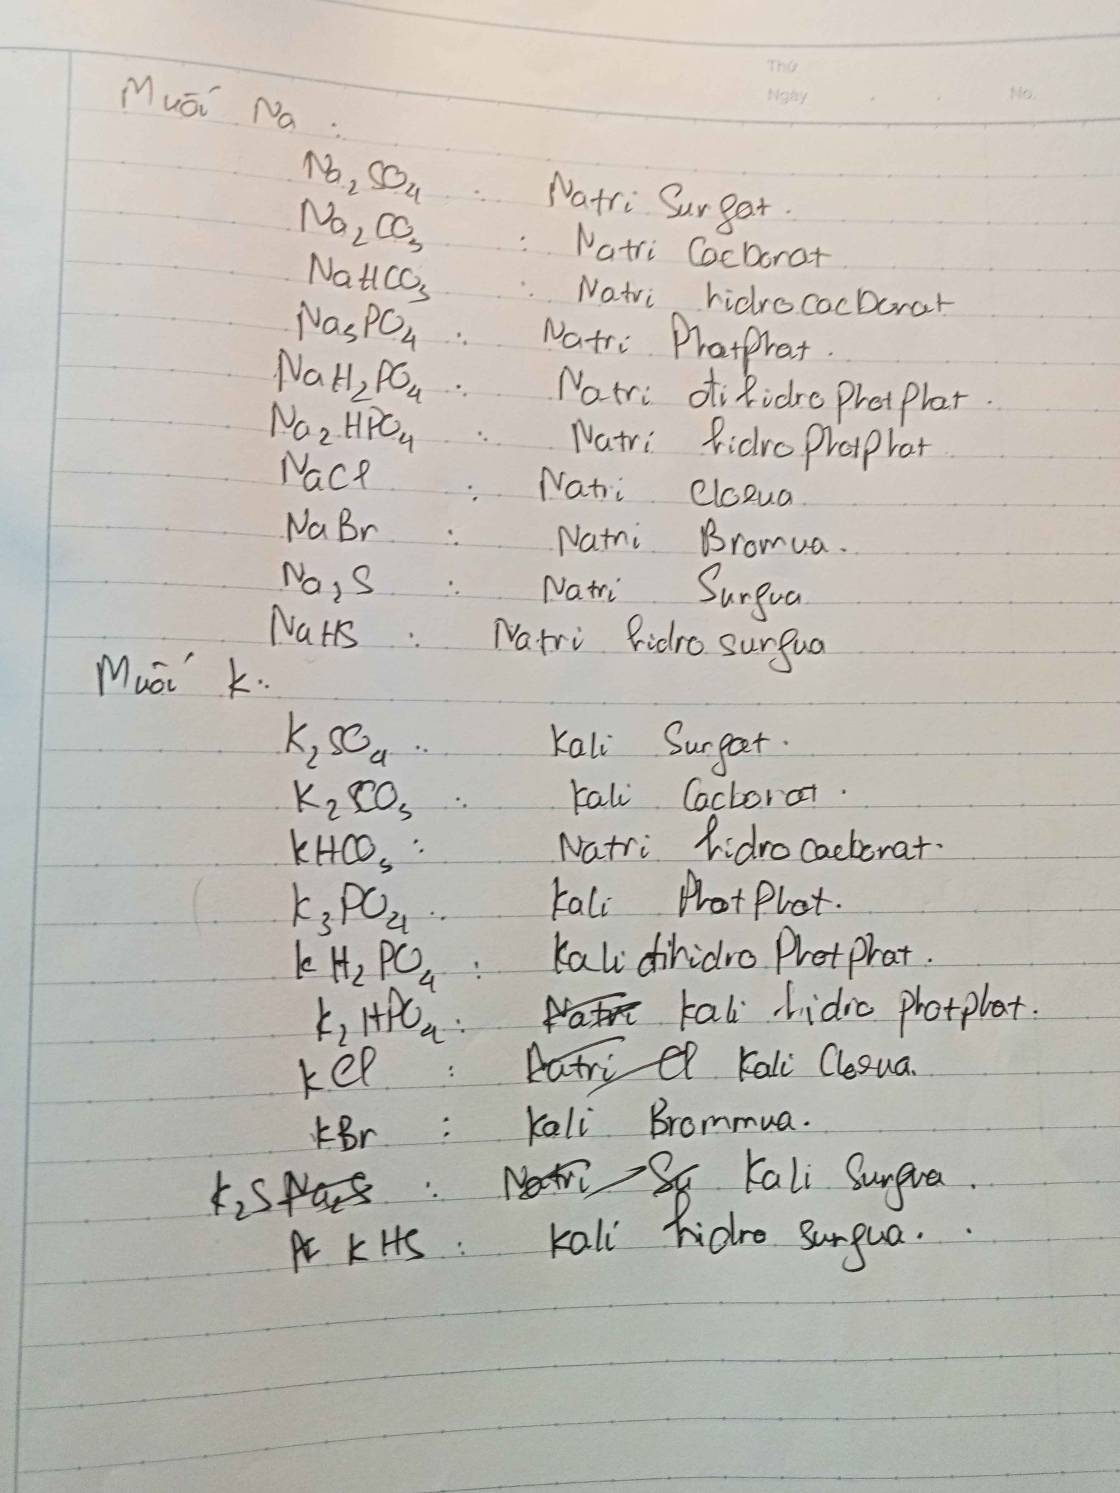 Thứ
Ngày . . No.
Muối Na :
Na₂SO₄ : Natri Surfat.
Na₂CO₃ : Natri Cacbonat
NaHCO₃ : Natri hidrocacbonat
Na₃PO₄ : Natri Photphat.
NaH₂PO₄ : Natri đihidro photphat.
Na₂HPO₄ : Natri hidro photphat
NaCl : Natri Clorua
NaBr : Natri Bromua.
Na₂S : Natri Surfua
NaHS : Natri hidro surfua
Muối k :
K₂SO₄ : kali Surfat.
K₂CO₃ : kali Cacbonat.
kHCO₃ : Natri hidrocacbonat.
k₃PO₄ : kali Photphat.
kH₂PO₄ : kali đihidro Photphat.
k₂HPO₄ : Natri kali hidro photphat.
kCl : Natri Cl Kali Clorua.
kBr : kali Brommua.
k₂S Na₂S : Natri Kali Surfua.
KHS : kali hidro surfua.